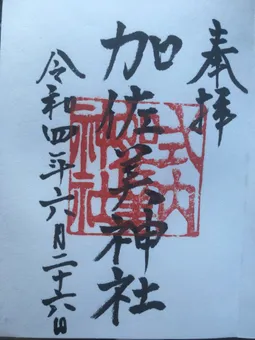 奉拝
加佐美神社
令和四年六月二十六日
式内
神社